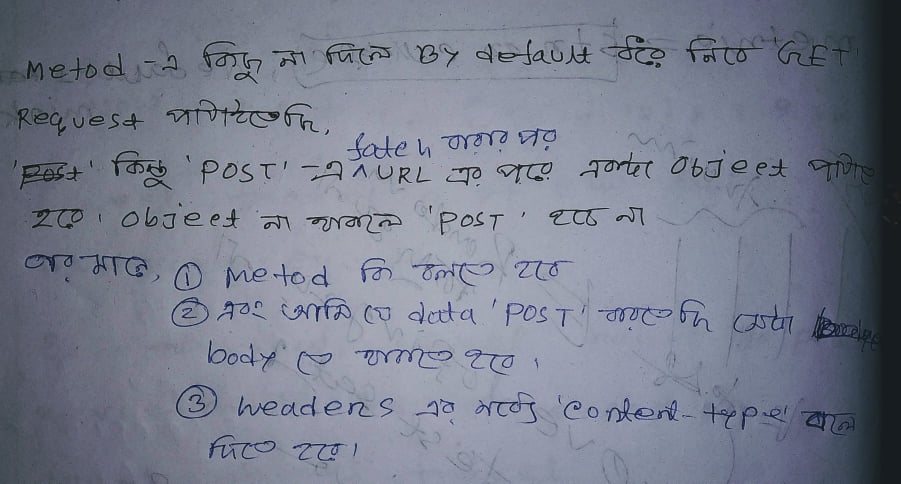 Metod -এ কিছু না দিলে By default ধরে নিবে GET
Request পাঠাইতেছি,
fatch করার পর
'Post' কিন্তু 'POST' -এ ^ URL এর পরে একটা Object পাঠাতে
হবে। Object না থাকলে 'POST' হবে না
তার মাঝে, ① Metod কি বলতে হবে
② এবং আমি যে data 'POST' করতেছি সেটা
body তে থাকতে হবে।
③ headers এর মধ্যে 'content-type' বলে
দিতে হবে।